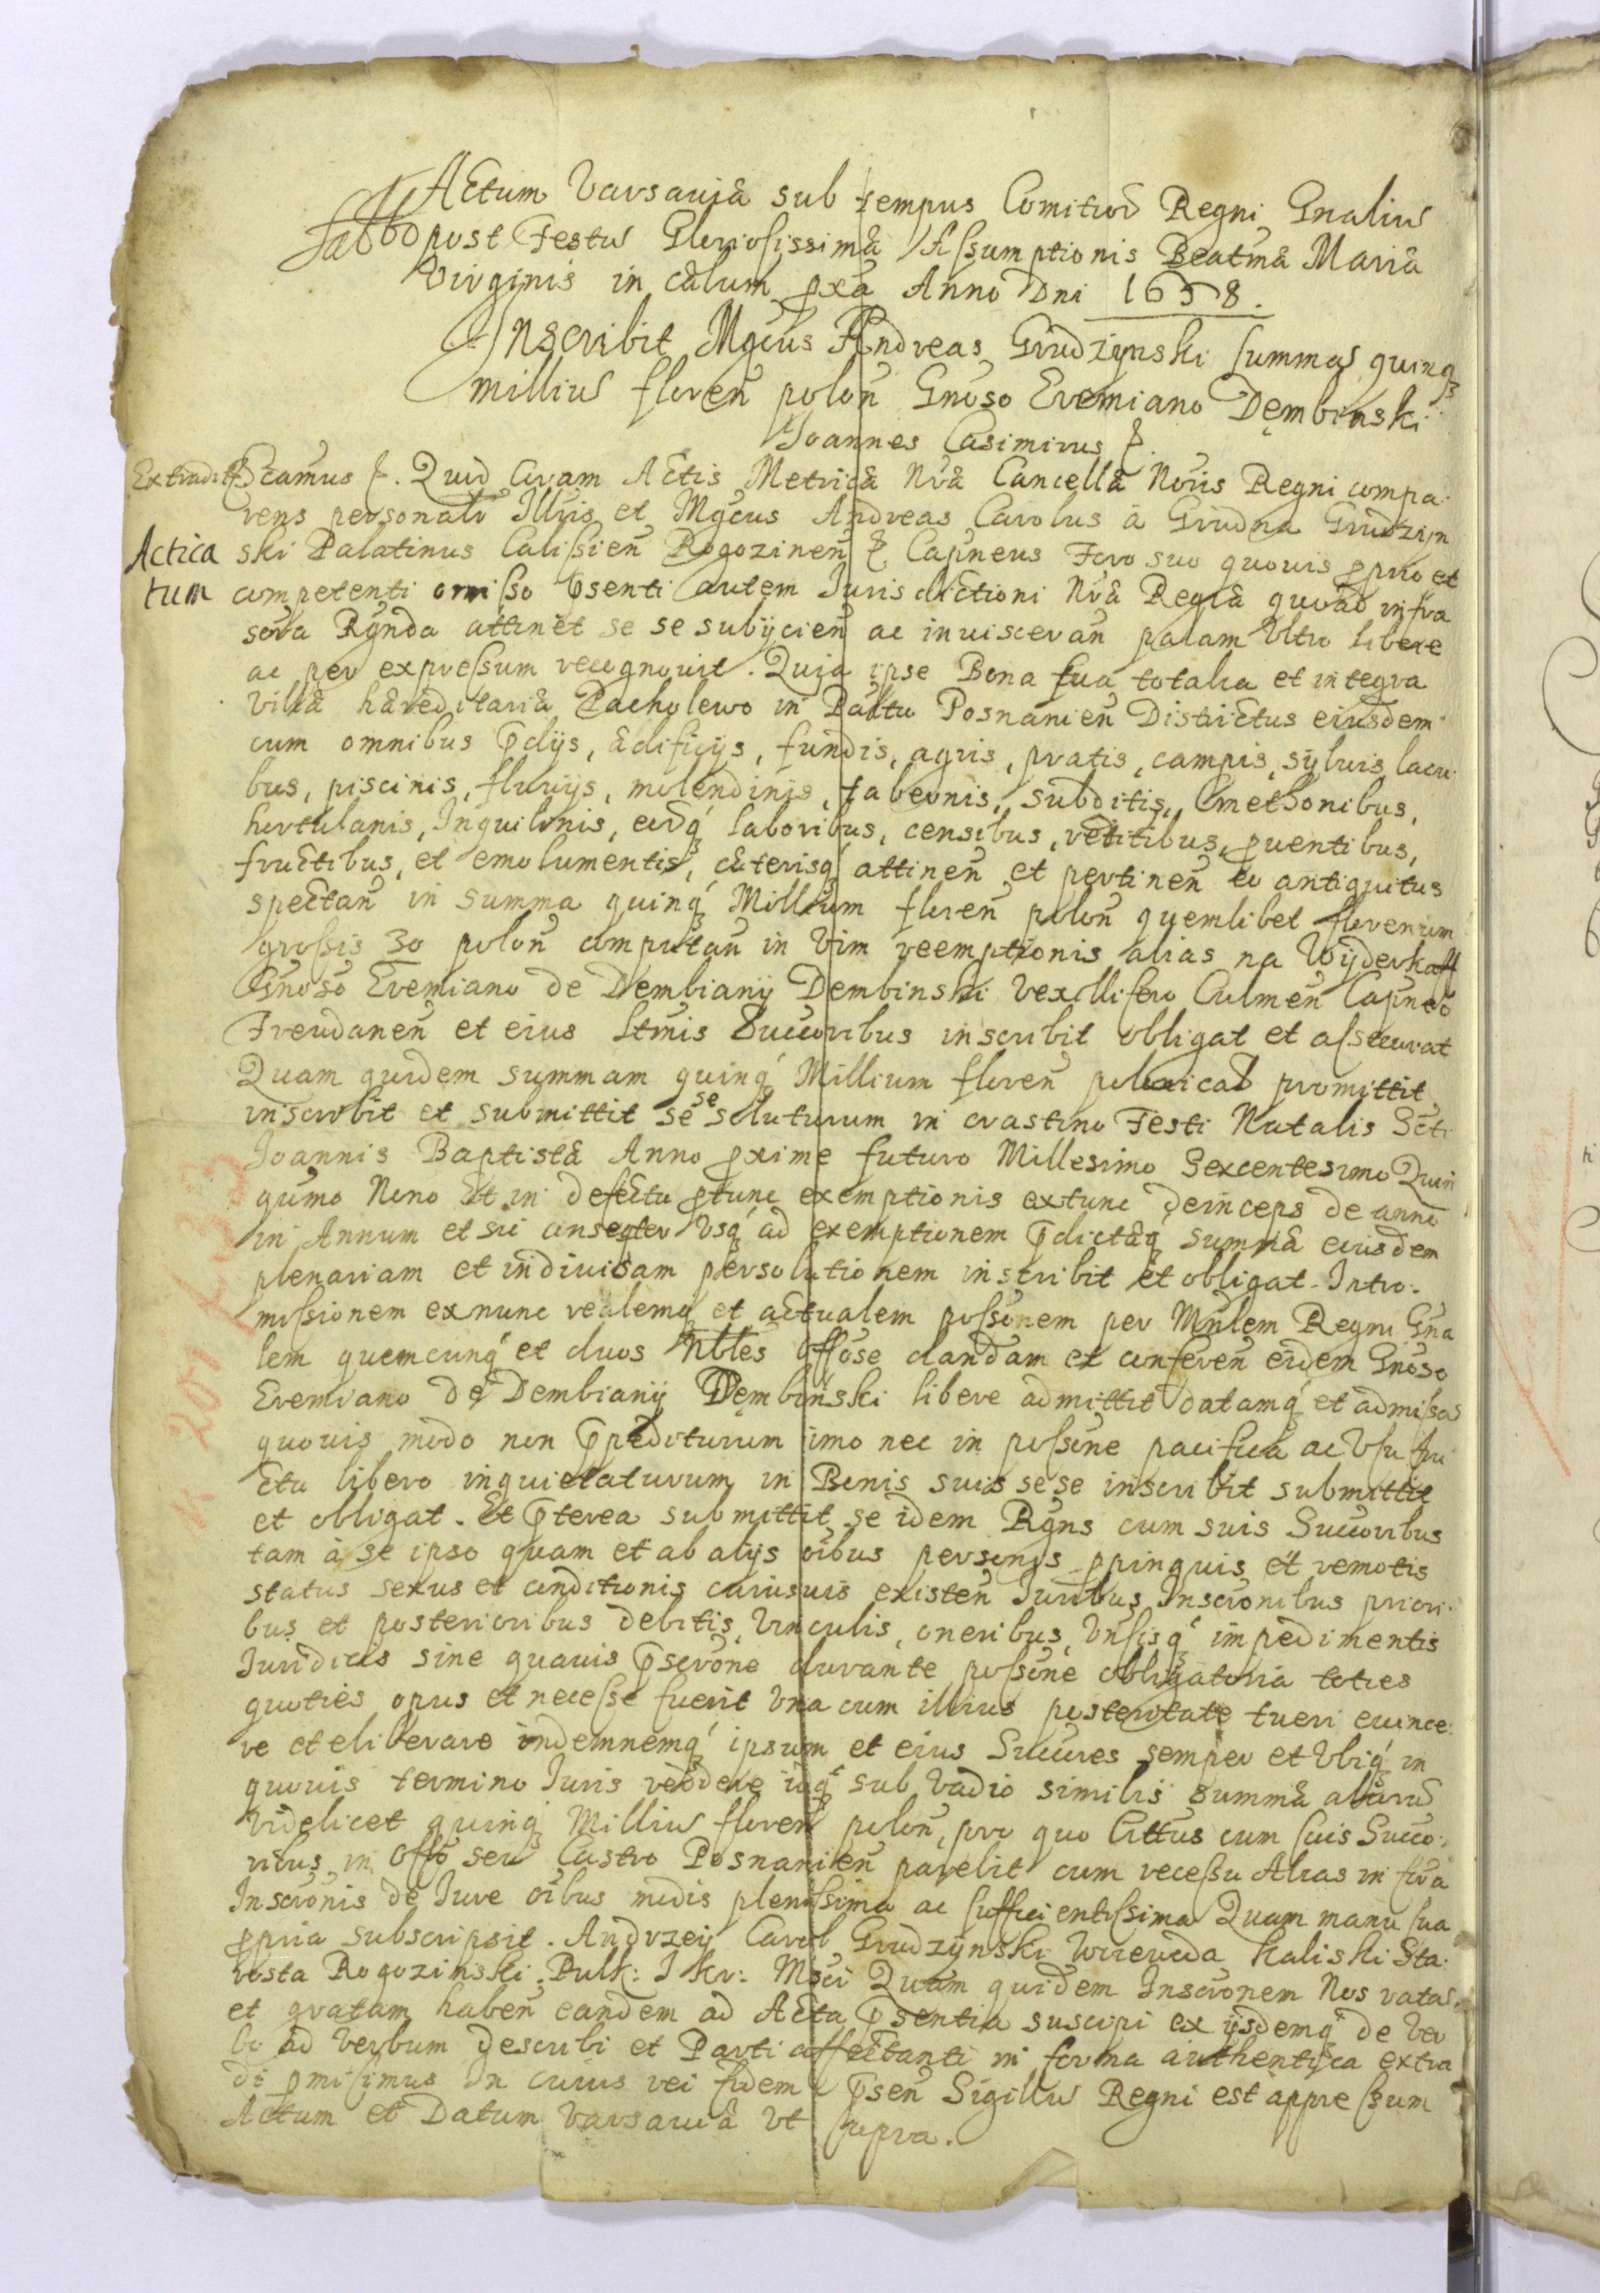 Actum Varsaviæ sub tempus Comitiorū Regni Gnaliū
Sabbō post Festū Gloriosissimæ Assumptionis Beatmæ Mariæ
Virginis in cælum pxa Anno Dni 1658.
Inscribit Mgcus Andreas Grudzynski summā quinq
milliū floren polon Gnoso Eremiano Dęmbinski
Joannes Casimirus
Extradit
Actica
tum
Quod Coram Actis Metricæ Nræ Cancellæ Noris Regni compa
rens personalr Illris et Mgcus Andreas Carolus à Grudna Grudzyn
ski Palatinus Calissien Rogozinen & Capneus Foro suo quovis pprio et
competenti omisso psenti autem Iurisdictioni Nræ Regiæ quoad infra
scra Rgnda attinet se se subÿcien ac invisceran palam Vltro libere
ac per expressum recognovit. Quia ipse Bona sua totalia et integra
Villæ hæreditariæ Pacholewo in Paltu Posnanien Districtus eiusdem
cum omnibus pdÿs, ædificÿs, fundis, agris, pratis, campis, sÿluis lacu
bus, piscinis, fluvÿs, molendinis, tabernis, subditis, Cmethonibus,
hortulanis, Inquilinis, eordq laboribus, censibus, redditibus, puentibus,
fructibus, et emolumentis, cæterisq attinen et pertinen eo antiquitus
spectan in summa quinq Millium floren polon quemlibet florenum
grossis 30 polon computan in Vim reemptionis alias na Wÿderkaff
Gnoso Eremiano de Dembianÿ Dembinski Vexillifero Culmen Capneo
Freudanen et eius Ltmis Succoribus inscribit obligat et assecurat
Quam quidem summam quinq Millium floren polonicaŁ promittit
inscribit et submittit se se soluturum in crastino Festi Natalis Scti
Joannis Baptistæ Anno pxime futuro Millesimo Sexcentesimo Quin
gumo Nono Et in defectu ptunc exemptionis extunc deinceps de anno
in Annum et sic consegter Vsq ad exemptionem pdictæq summæ eiusdem
plenariam et indivisam persolutionem inscribit et obligat. Intro
missionem exnunc realemq et actualem possonem per Mnlem Regni Gna
lem quemcunq et duos Nbles Offose dandam et conferen eidem Gnoso
Eremiano de Dembianÿ Dęmbinski libere admittit datamq et admissā
quovis modo non ppeditturum imo nec in possone pacifica ac Vsu fru
ctu libero inquietaturum in Bonis suis sese inscribit submittit
et obligat. Et pterea submittit se idem Rgns cum suis Succoribus
tam a se ipso quam et ab alÿs oibus personis ppinquis et remotis
status sexus et conditionis cuiusvis existen Iuribus Inscronibus priori
bus et posterioribus debitis, Vinculis, oneribus, Vnsisq impedimentis
Iuridicis sine quavis pscrone durante possone obligatoria toties
quoties opus et necesse fuerit Vna cum illius posteritate tueri evince
re et eliberare indemnemq ipsum et eius Succores semper et Vbiq in
quovis termino Iuris reddere idq sub Vadio similis summæ alterū
Videlicet quinq Milliū floren polon, pro quo Cittus cum suis Succo
ribus in Offo seu Castro Posnanien parebit cum recessu Alias in fira
Inscronis de Iure oibus modis plenissima ac sufficientissima Quam manu sua
ppria subscripsit. Andrzeÿ Carol Grudzÿnski Woiewoda Kaliski Sta
rosta Rogozinski. Pulk: J kr: Msci Quam quidem Inscronem Nos ratā
et gratam haben eandem ad Acta psentia suscipi ex ÿsdemq de Ver
bo ad Verbum describi et Parti affectanti in forma authentyca extra
di pmisimus In cuius rei fidem psen Sigillū Regni est appressum
Actum et Datum Varsaviæ Vt supra.